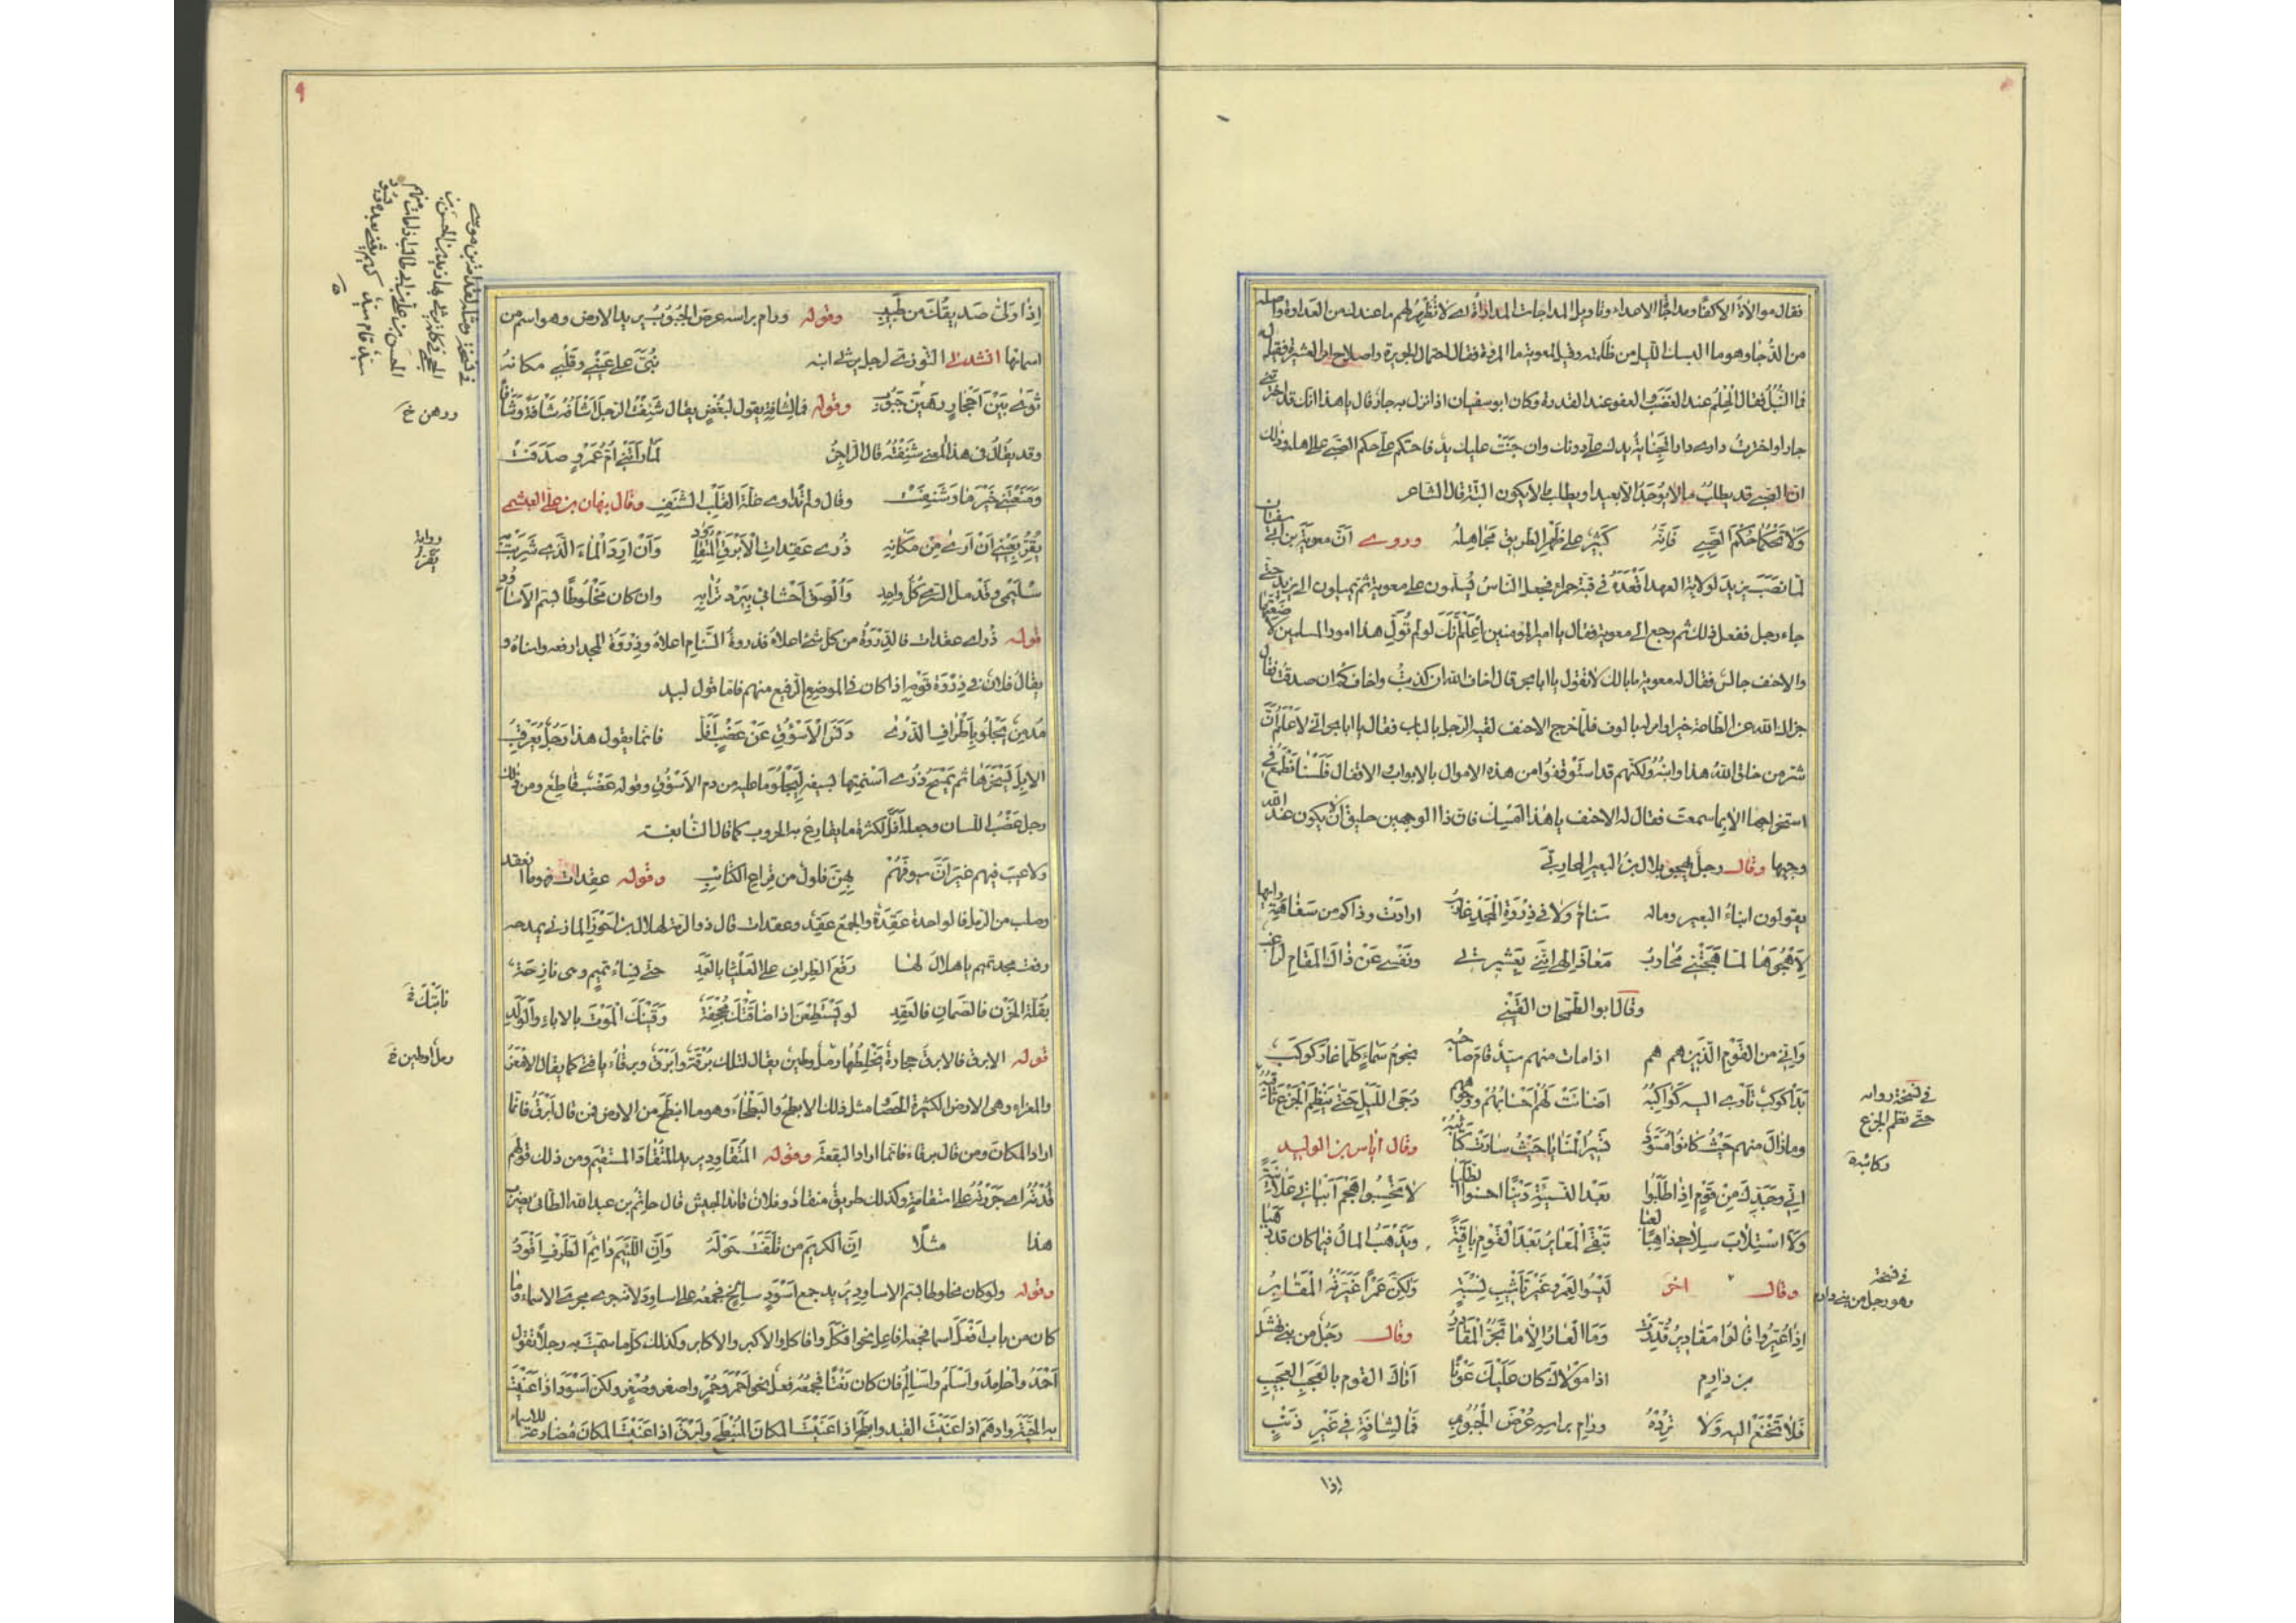 فقال موالاة الاكفاء ومداجاة الاعداء وتاويل المداجات المداراة اى لا تظهر لهم ما عندك من العداوة واصله
من الدجا وهو ما البسك الليل من ظلمته وقيل لمعوية ما المروة فقال احتمال الجريرة واصلاح امر العشيرة فقيل له
فما النبل فقال الحلم عند الغضب والعفو عند القدرة وكان ابو سفيان اذا نزل به جار قال يا هذا انك قد اخترتنى
جارا واخترت دارى دارا فجناية يدك على دونك وان جنت عليك يد فاحتكم على حكم الصبى على اهله وذلك
ان الصبى قد يطلب ما لا يوجد الا بعيدا ويطلب ما لا يكون البتة قال الشاعر
وَلا تَحْكُما حُكْمَ الصَّبِى فَانَّهُ كَثِيرٌ عَلى ظَهْرِ الطَّرِيقِ مَجَاهِلُهُ وروى انّ معوية بن ابى سفيان
لما نصب يزيد لولاية العهد اقعده فى قبة حمراء فجعل الناس يسلمون على معوية ثم يميلون الى يزيد حتى
جاء رجل ففعل ذلك ثم رجع الى معوية فقال يا امير المؤمنين اعلم انك لو لم تولّ هذا امور المسلمين لاضعتها
والاحنف جالس فقال له معوية ما بالك لا تقول يا ابا بحر قال اخاف الله ان كذبت واخافكم ان صدقت فقال
جزاك الله عن الطاعة خيرا وامر له بالوف فلما خرج الاحنف لقيه الرجل بالباب فقال يا ابا بحر انى لاعلم ان
شر من خلق الله هذا وابنه ولكنهم قد استوثقوا من هذه الاموال بالابواب والاقفال فلسنا نطمع فى
استخراجها الا بما سمعت فقال له الاحنف يا هذا امسك فان ذا الوجهين خليق ان لا يكون عند الله
وجيها وقال رجل يهجو بلال بن البعير المحاربى
يقولون ابناء البعير وماله سنام ولا فى ذروة المجد غارب ارادت وذاكم من سفاهة رايها
لاهجوها لما هجتنى محارب معاذ الهى اننى بعشيرتى ونفسى عن ذاك المقام لراغب
وقال ابو الطمحان القينى
وانى من القوم الذين هم هم اذا مات منهم سيد قام صاحبه نجوم سماء كلما غار كوكب
بدا كوكب تاوى اليه كواكبه اضائت لهم احسابهم ووجوههم دجى الليل حتى ينظم الجزع ثاقبه
وما زال منهم حيث كانوا مسود تسير المنايا حيث سارت كتائبه وقال اياس بن الوليد
انى وجدك من قوم اذا طلبوا بعد النسيئة دينا احسنوا الطلبا لا تحسبوا هجم ابياتى علانية
ولا استلاب سلاحى ذاهبا لعبا تبقى المعاير بعد القوم باقية ويذهب المال فيما كان قد ذهبا
وقال اخر ليسوا لعمرو غير تاشيب نسبة ولكن عمرا غيرته المقادر
اذا عيروا قالوا مقادير قدرت وما العار الا ما تجر المقادر وقال رجل من بنى نهشل
بن دارم اذا مولاك كان عليك عونا اتاك القوم بالعجب العجيب
فلا تخنع اليه ولا ترده ورام براسه عرض الجبوب فما لشافة فى غير ذنب
اذا
فى نسخة رواية
حتى نظم الجزع
ركائبه
فى نسخة
وهو رجل من بنى دارم
٩
اذا ولى صديقك من طبيب وقوله ورام براسه عرض الجبوب يريد الارض وهو اسم من
اسمائها انشدنى التوزى لرجل يرثى ابنه بنى على عينى وقلبى مكانه
ثوى بين احجار رهين جبوب وقوله فما لشافة يقول لبغض يقال شئفت الرجل اشافه شافة وشافا
وقد يقال فى هذا المعنى شنفته قال الراجز لما راتنى ام عمرو صدفت
ومنعتنى خيرها وشنفت وقال ولم تداوى غلة القلب الشنف وقال نبهان بن على العبشمى
يقر بعينى ان ارى من مكانه ذرى عقدات الابرق المتقاود وان ارد الماء الذى شربت
سليمى وقد مل السرى كل واحد والصق احشائى ببرد ترابه وان كان مخلوطا بسم الاساود
قوله ذرى عقدات فالذروة من كل شئ اعلاه فذروة السنام اعلاه وذروة المجد ارفعه واسناه و
يقال فلان فى ذروة قومه اذا كان فى الموضع الرفيع منهم فاما قول لبيد
مدمن يجلو باطراف الذرى دنس الاسؤق عن عضب افل فانما يقول هذا رجل يعرقب
الابل لينحرها ثم يمسح ذرى اسنمتها بسيفه ليجلو ما عليه من دم الاسؤق وقوله عضب قاطع ومن ذلك
رجل عضب اللسان وجعله افل لكثرة ما يقارع به الحروب كما قال النابغة
ولا عيب فيهم غير ان سيوفهم بهن فلول من قراع الكتائب وقوله عقدات فهو ما انعقد
وصلب من الرمل فالواحدة عقدة والجمع عقد وعقدات قال ذو الرمة لهلال بن احوز المازنى يمدحه
رفعت مجد تميم يا هلال لها رفع الطراف على العلياء بالعمد حتى نساء تميم وهى نازحة
بقلة الحزن فالصمان فالعقد لو يستطعن اذا ضافتك مجحفة وقينك الموت بالاباء والولد
قوله الابرق فالابرق حجارة يخلطها رمل وطين يقال لتلك برقة وابرق وبرقاء يا فتى كما يقال الامعز
والمعزاء وهى الارض الكثيرة الحصا مثل ذلك الابطح والبطحاء وهو ما انبطح من الارض فمن قال ابرق فانما
اراد المكان ومن قال برقاء فانما اراد البقعة وقوله المتقاود يريد المنقاد المستقيم ومن ذلك قولهم
قدته اى جررته على استقامة وكذلك طريق منقاد وفلان قائد الجيش قال حاتم بن عبد الله الطائى يضرب
هذا مثلا ان الكريم من تلفت حوله وان اللئيم دائم الطرف اقود
وقوله ولو كان مخلوطا بسم الاساود يريد جمع اسود سالخ فجمعه على اساود لانه جرى مجرى الاسماء وما
كان من باب افعل اسما فجمعه افاعل نحو افكل وافاكل والاكبر والاكابر وكذلك كل ما سميت به رجلا تقول
احمد واحامد واسلم واسالم فان كان نعتا فجمعه فعل نحو احمر وحمر واصفر وصفر ولكن اسود اذا عنيت
به الحية وادهم اذا عنيت القيد وابطح اذا عنيت المكان المنبطح وابرق اذا عنيت المكان مضارعة للاسماء
ورهن خ
رواية
يقر
فابتك خ
رمل او طين خ